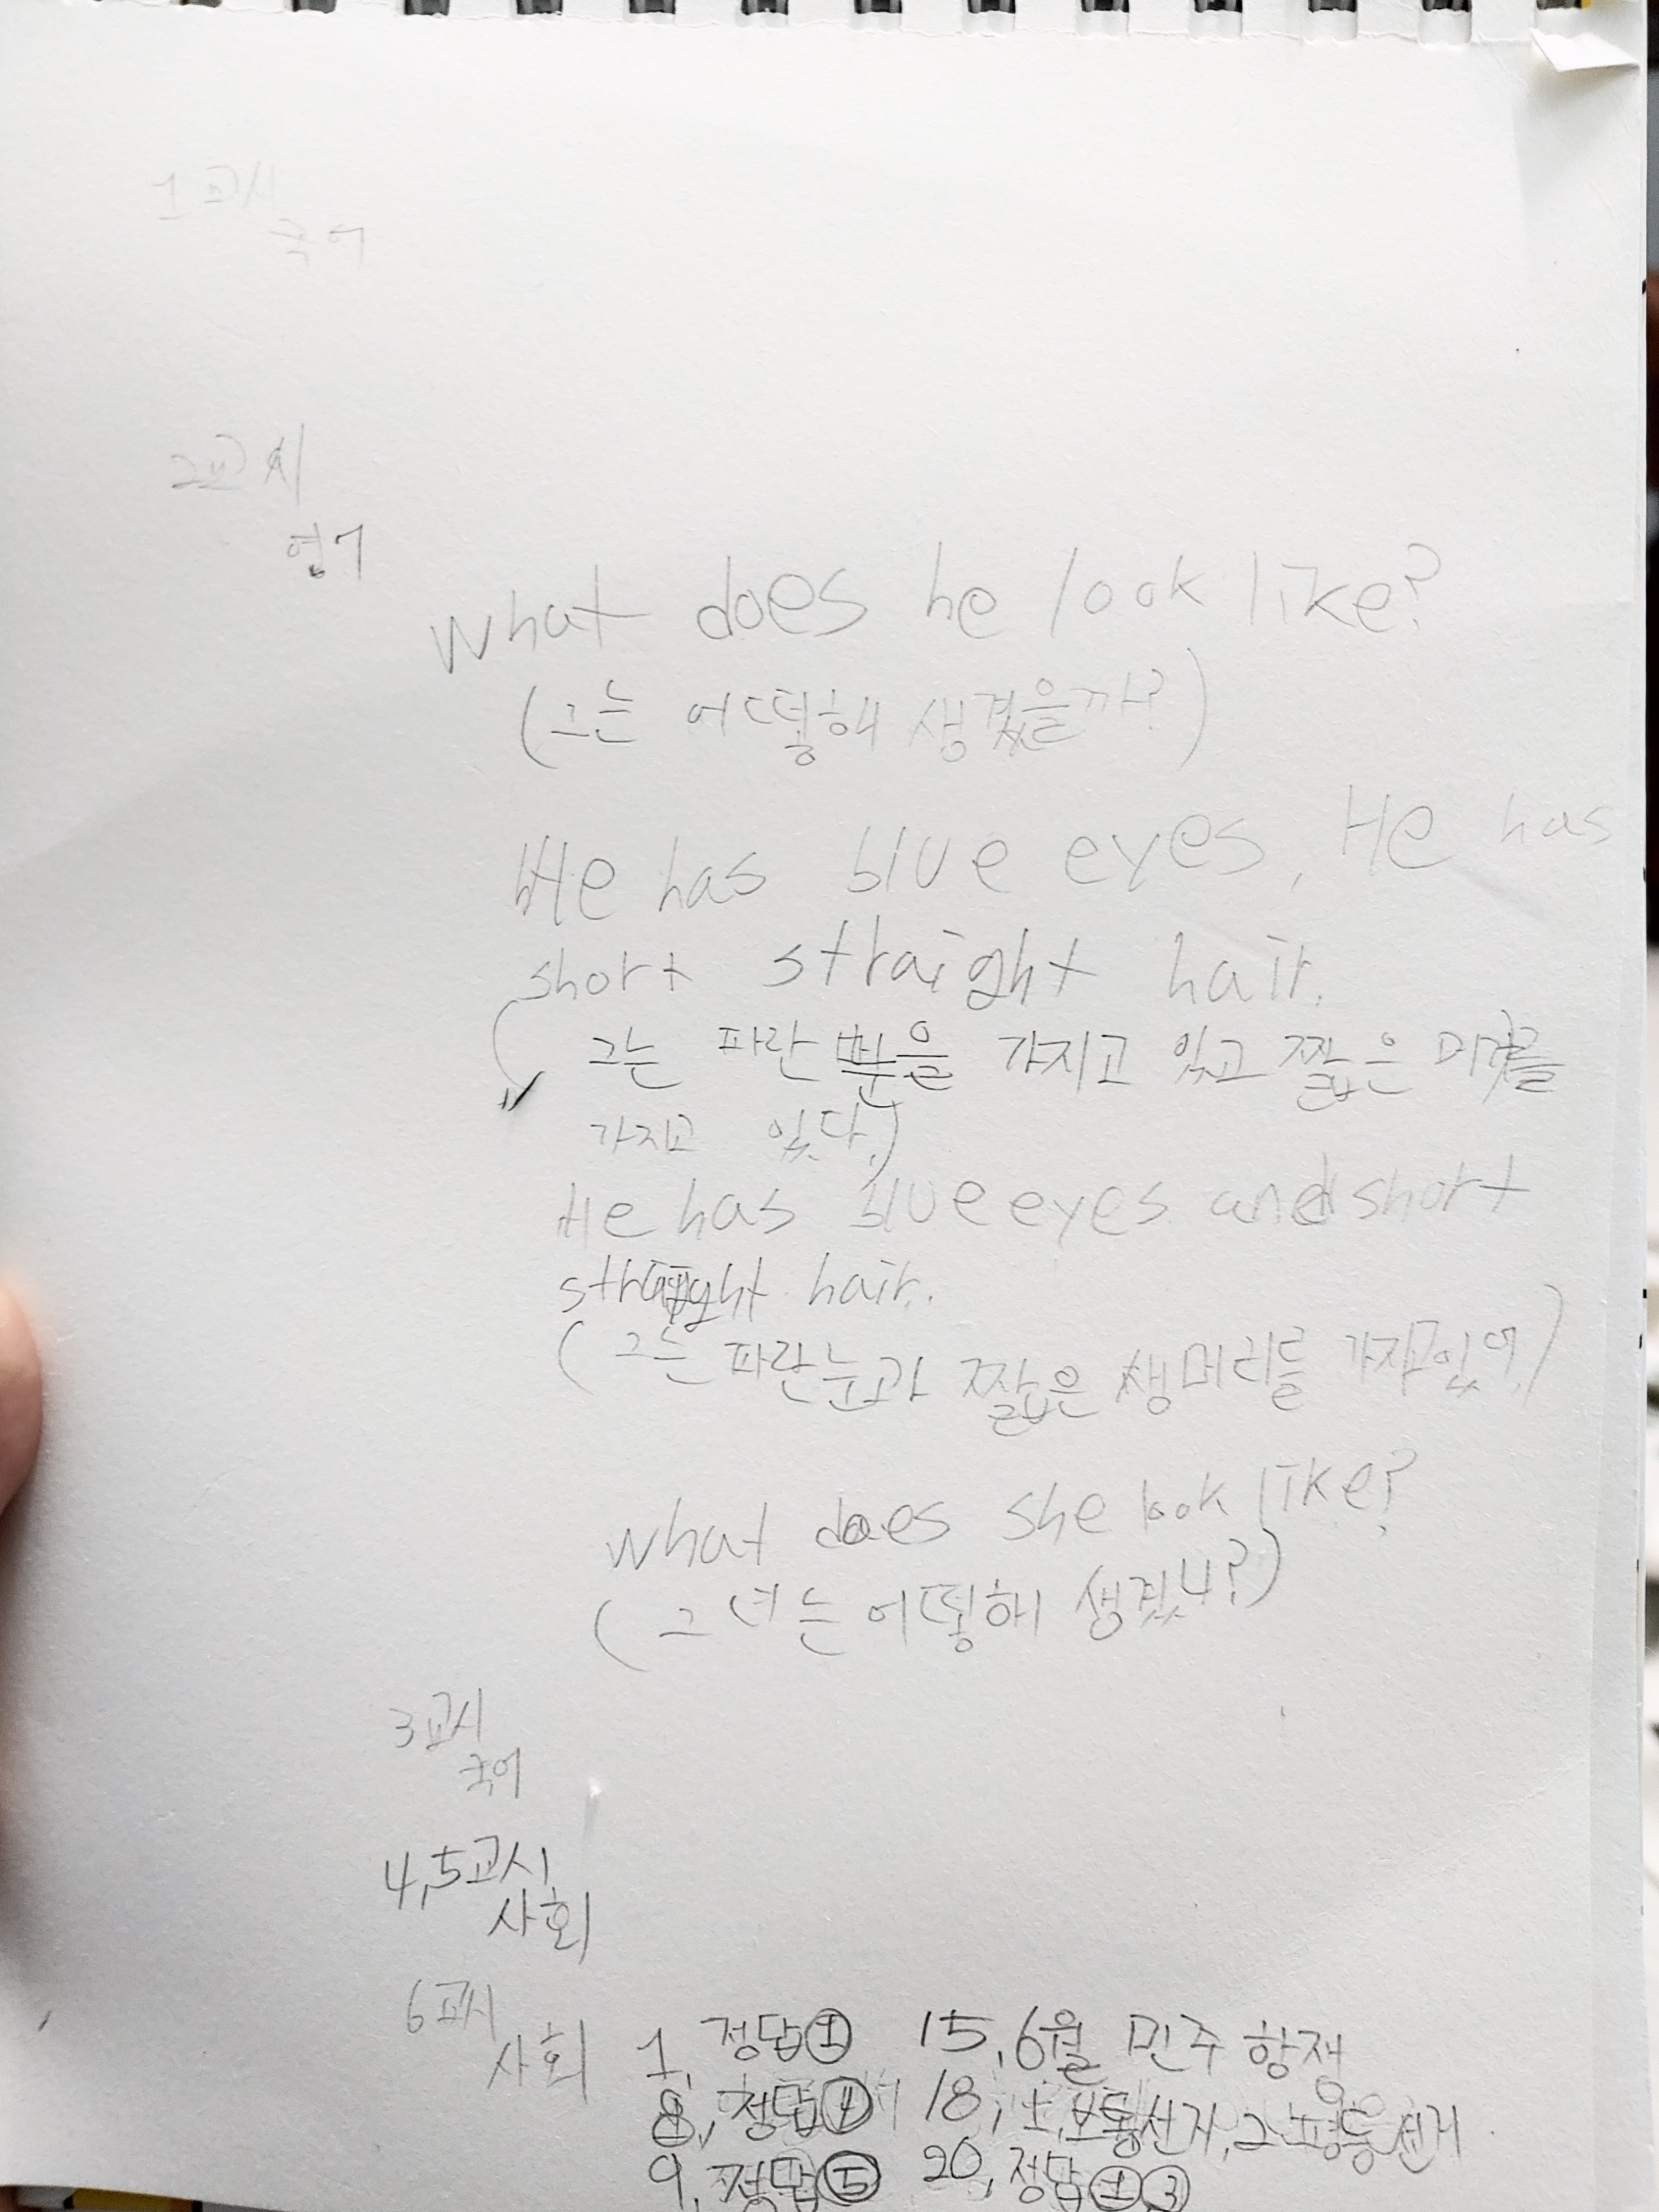 1교시
국어
2교시
영어
What does he look like?
(그는 어떻해 생겼을까?)
He has blue eyes, He has
short straight hair.
그는 파란 눈을 가지고 있고 짧은
가지고 있다.)
He has blue eyes and short
straight hair.
(그는 파란눈과 짧은 생머리를 가지고있어.)
What does she look like?
(그녀는 어떻해 생겼니?)
3교시
국어
4,5교시
사회
6교시
사회 1, 정답① 15, 6월 민주 항쟁
8, 정답④ 18, 1, 보통선거, 2 평등선거
9, 정답⑤ 20, 정답①,③